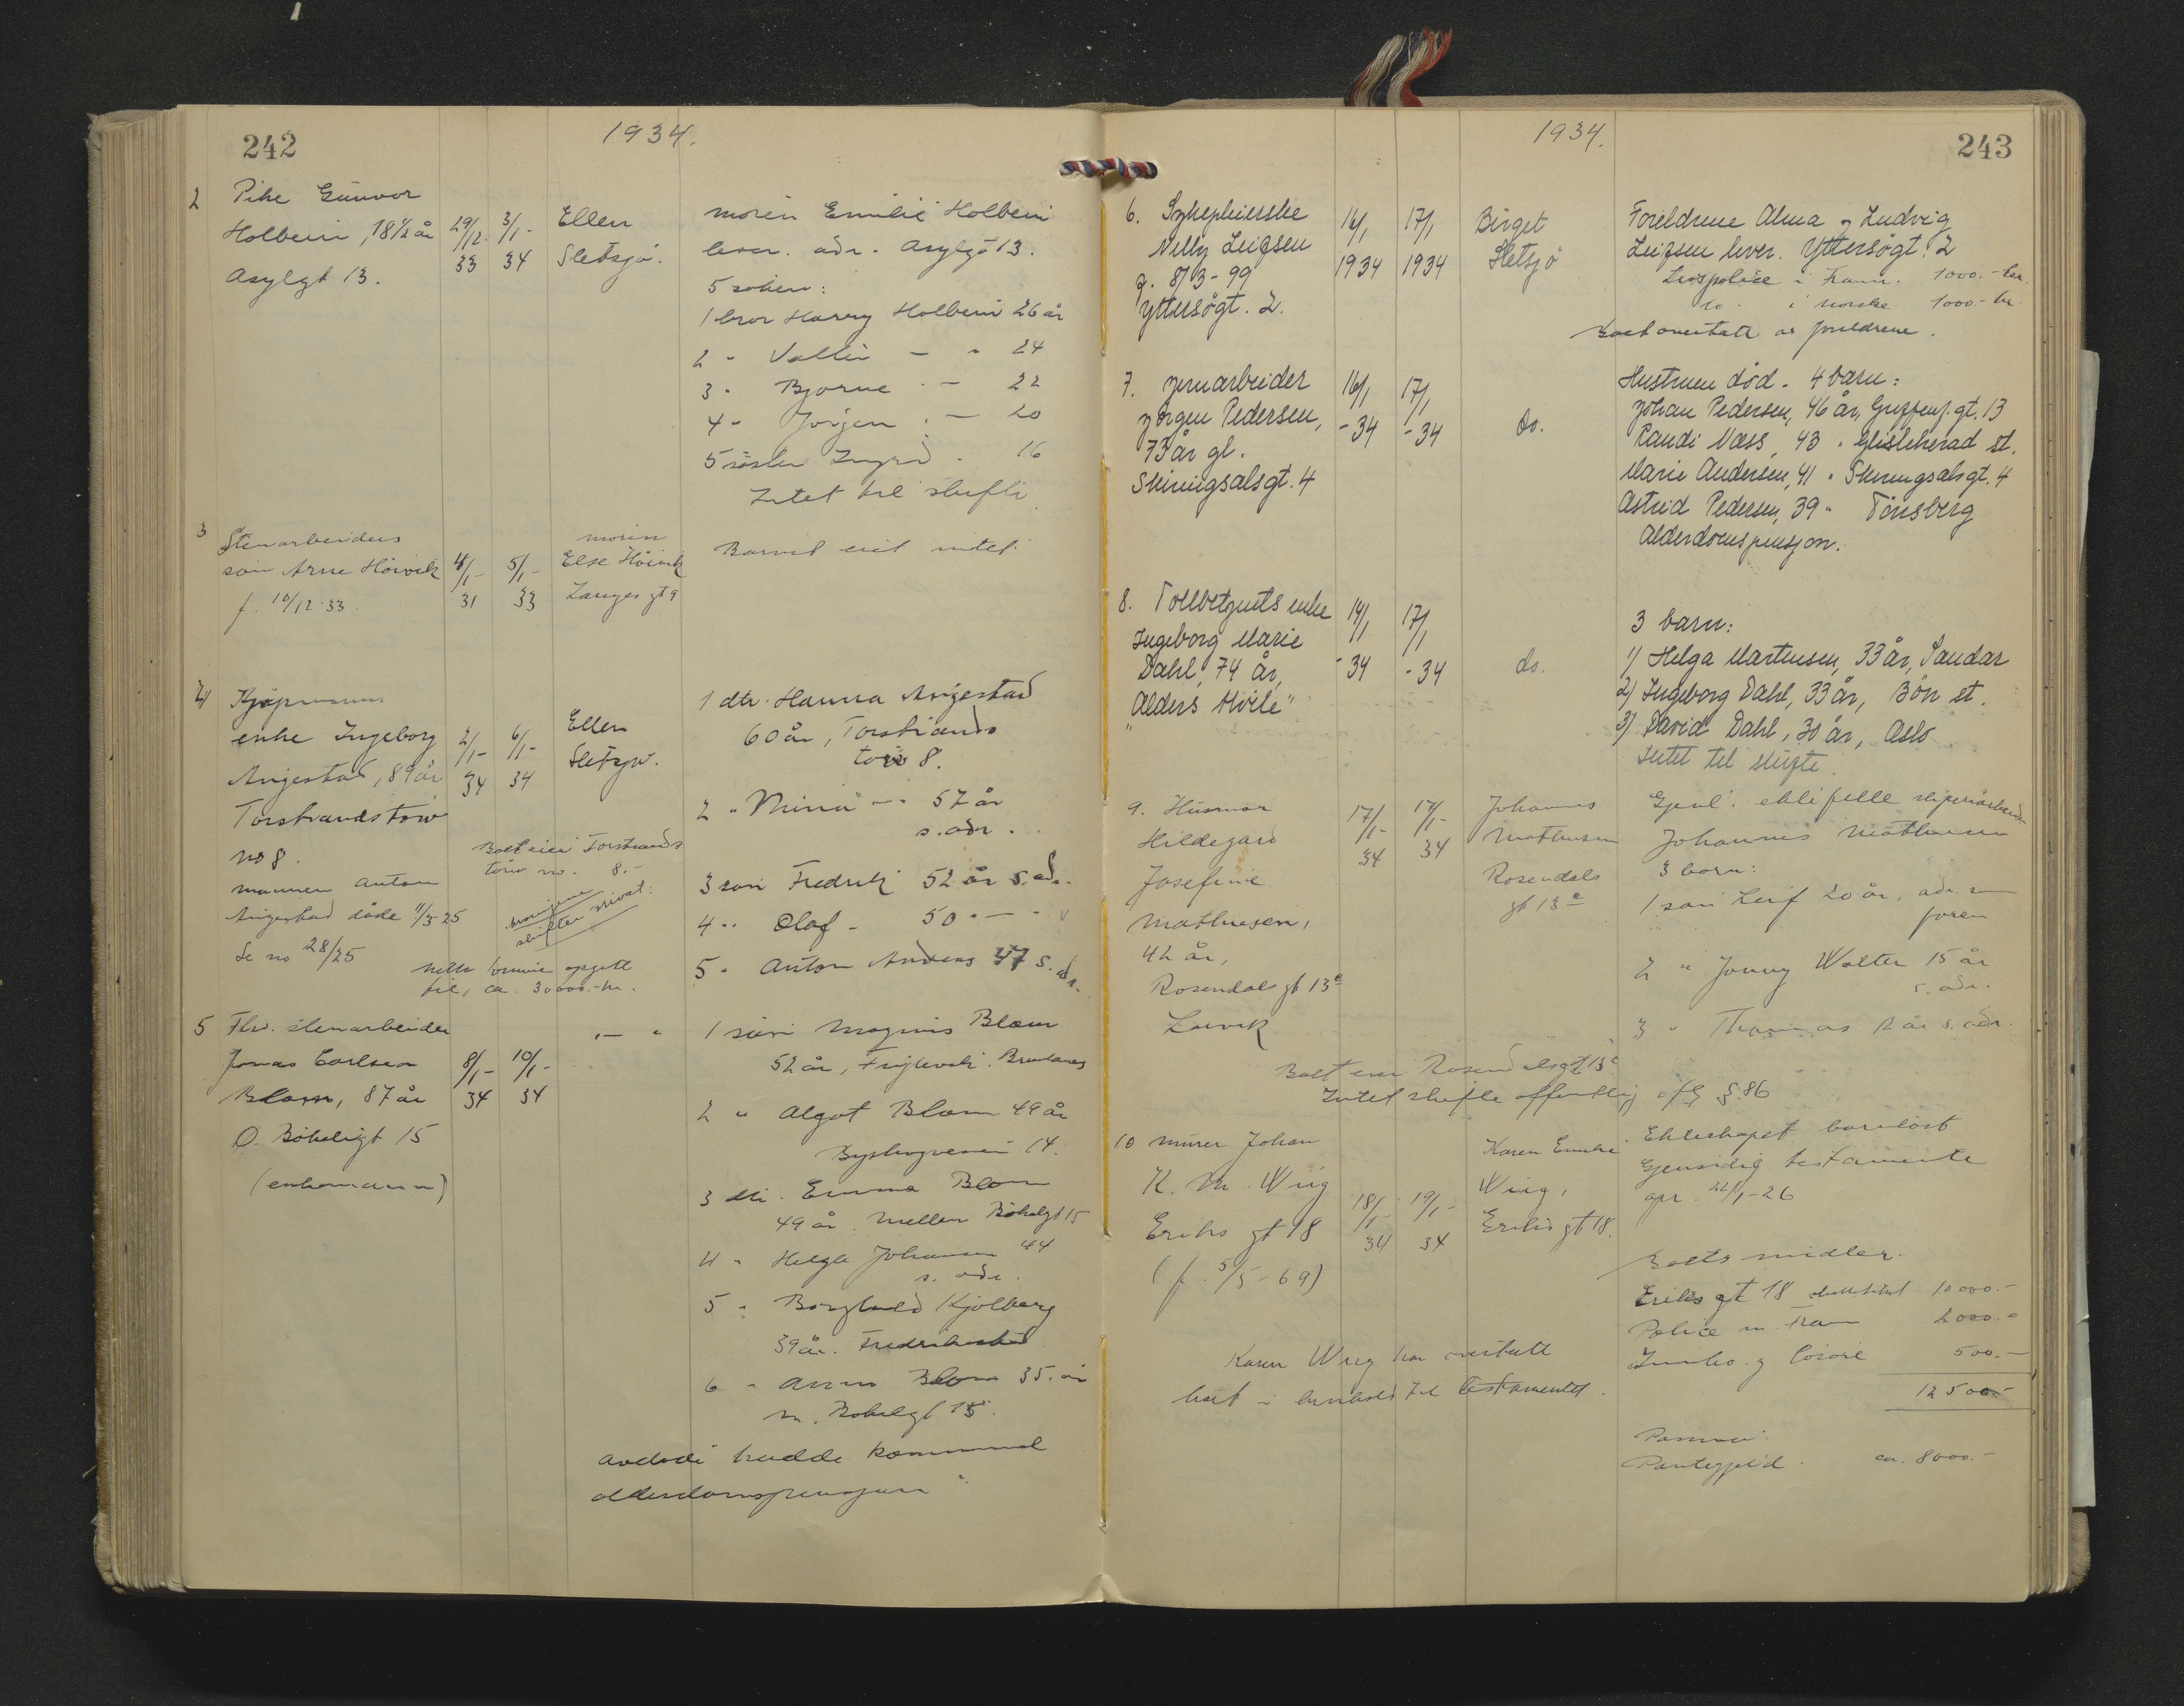 242
1934.
2 Pike Gunvor
Holbein, 18½ år
Asylgt 13.
29/12 33
3/1- 34
Ellen
Sletsjø.
moren Emilie Holbein
lever. adr. Asylgt 13.
5 søsken:
1 bror Harry Holbein 26 år
2 " - " 24
3 " Bjarne - 22
4 " Jørgen - 20
5 søster Ingrid " 16
Intet til skifte
3 Stenarbeiders
søn Arne Høivik
f. 10/12 33
4/1- 31
5/1- 33
moren
Else Høivik
Langes gt 9
Barnet eiet intet.
4 Kjøpmanns
enke Ingeborg
Angestad, 89 år
Torstrandstorv
no 8.
mannen Anton
Angestad døde 11/3-25
Se no 28/25
2/1- 34
6/1- 34
Ellen
Sletsjø.
Boet eier Torstrands
torv no. 8.-
Arvingene
skifter privat.
netto formue opgitt
til, ca. 30000.- kr.
1 dtr. Hanna Angestad
60 år, Torstrands
torv 8.
2 " Mina - " 57 år
s. adr.
3 søn Fredrik 52 år s. adr.
4 " Olaf - 50 " - "
5 " Anton Anders 47 s. adr.
5 Fhv. stenarbeider
Jonas Carlsen
Blom, 87 år
Ø. Bøkeligt 15
(enkemann)
8/1- 34
10/1- 34
- "
1 søn Magnus Blom
52 år,
2 " Algot Blom 49 år
Byskogveien 14.
3 dtr. Emma Blom
49 år. Mellem Bøkeligt 15
4 " Helga Johansen 44
s. adr.
5 " Borghild Kjølberg
39 år. Fredrikstad
6 " Anna Blom 35 år
m. Bøkeligt 15.
Avdøde hadde kommunal
alderdomspensjon
1934.
243
6. Sykepleierske
Nelly Leifsen
f. 8/3-99
Yttersøgt. 2.
16/1 1934
17/1 1934
Birget
Sletsjø
Foreldrene Alma og Ludvig
Leifsen lever. Yttersøgt. 2
Livspolice i Fram. 1000.- kr.
do. i Norske 1000.- kr.
Boet overtatt av foreldrene.
7. Jernarbeider
Jørgen Pedersen,
73 år gl.
Skiringsalsgt. 4
16/1 -34
17/1 -34
do.
Hustruen død. 4 barn:
Johan Pedersen, 46 år, Griffenf.gt. 13
Randi Næss, 43 " st.
Marie Andersen, 41 " Skiringsalsgt. 4
Astrid Pedersen, 39 " Tønsberg
Alderdomspensjon.
8. Tollbetjents enke
Ingeborg Marie
Dahl, 74 år,
"Alders Hvile"
14/1 -34
17/1 -34
do.
3 barn:
1) Helga Martinsen, 33 år, Sandar
2) Ingeborg Dahl, 33 år, Bøn st.
3) David Dahl, 30 år, Oslo
Intet til skifte.
9. Husmor
Hildegard
Josefine
Mathiesen,
42 år,
Rosendals gt 13c
Larvik
17/1- 34
17/1- 34
Johannes
Mathiesen
Rosendals
gt 13c
Gjenl. ektefelle sliperiarbeider
Johannes Mathiesen
3 barn:
1 søn Leif 20 år, adr. som
faren
2 " Jonny Walter 15 år
s. adr.
3 " Thomas 12 år s. adr.
Boet eier Rosendalsgt 13c
Intet skifte offentlig cfr § 86
10 Murer Johan
K. M. Wiig
Eriks gt 18
(f. 5/5-69)
18/1- 34
19/1- 34
Karen Emilie
Wiig,
Eriks gt 18.
Ekteskapet barnløst
Gjensidig testamente
opr. 22/1-26
Boets midler.
Eriks gt 18 10000.-
Police m. Fram 2000.-
Innbo og løsøre 500.-
12500.-
Passiva:
Pantegjeld ca. 8000.-
Karen Wiig har overtatt
boet i henhold til testamentet.